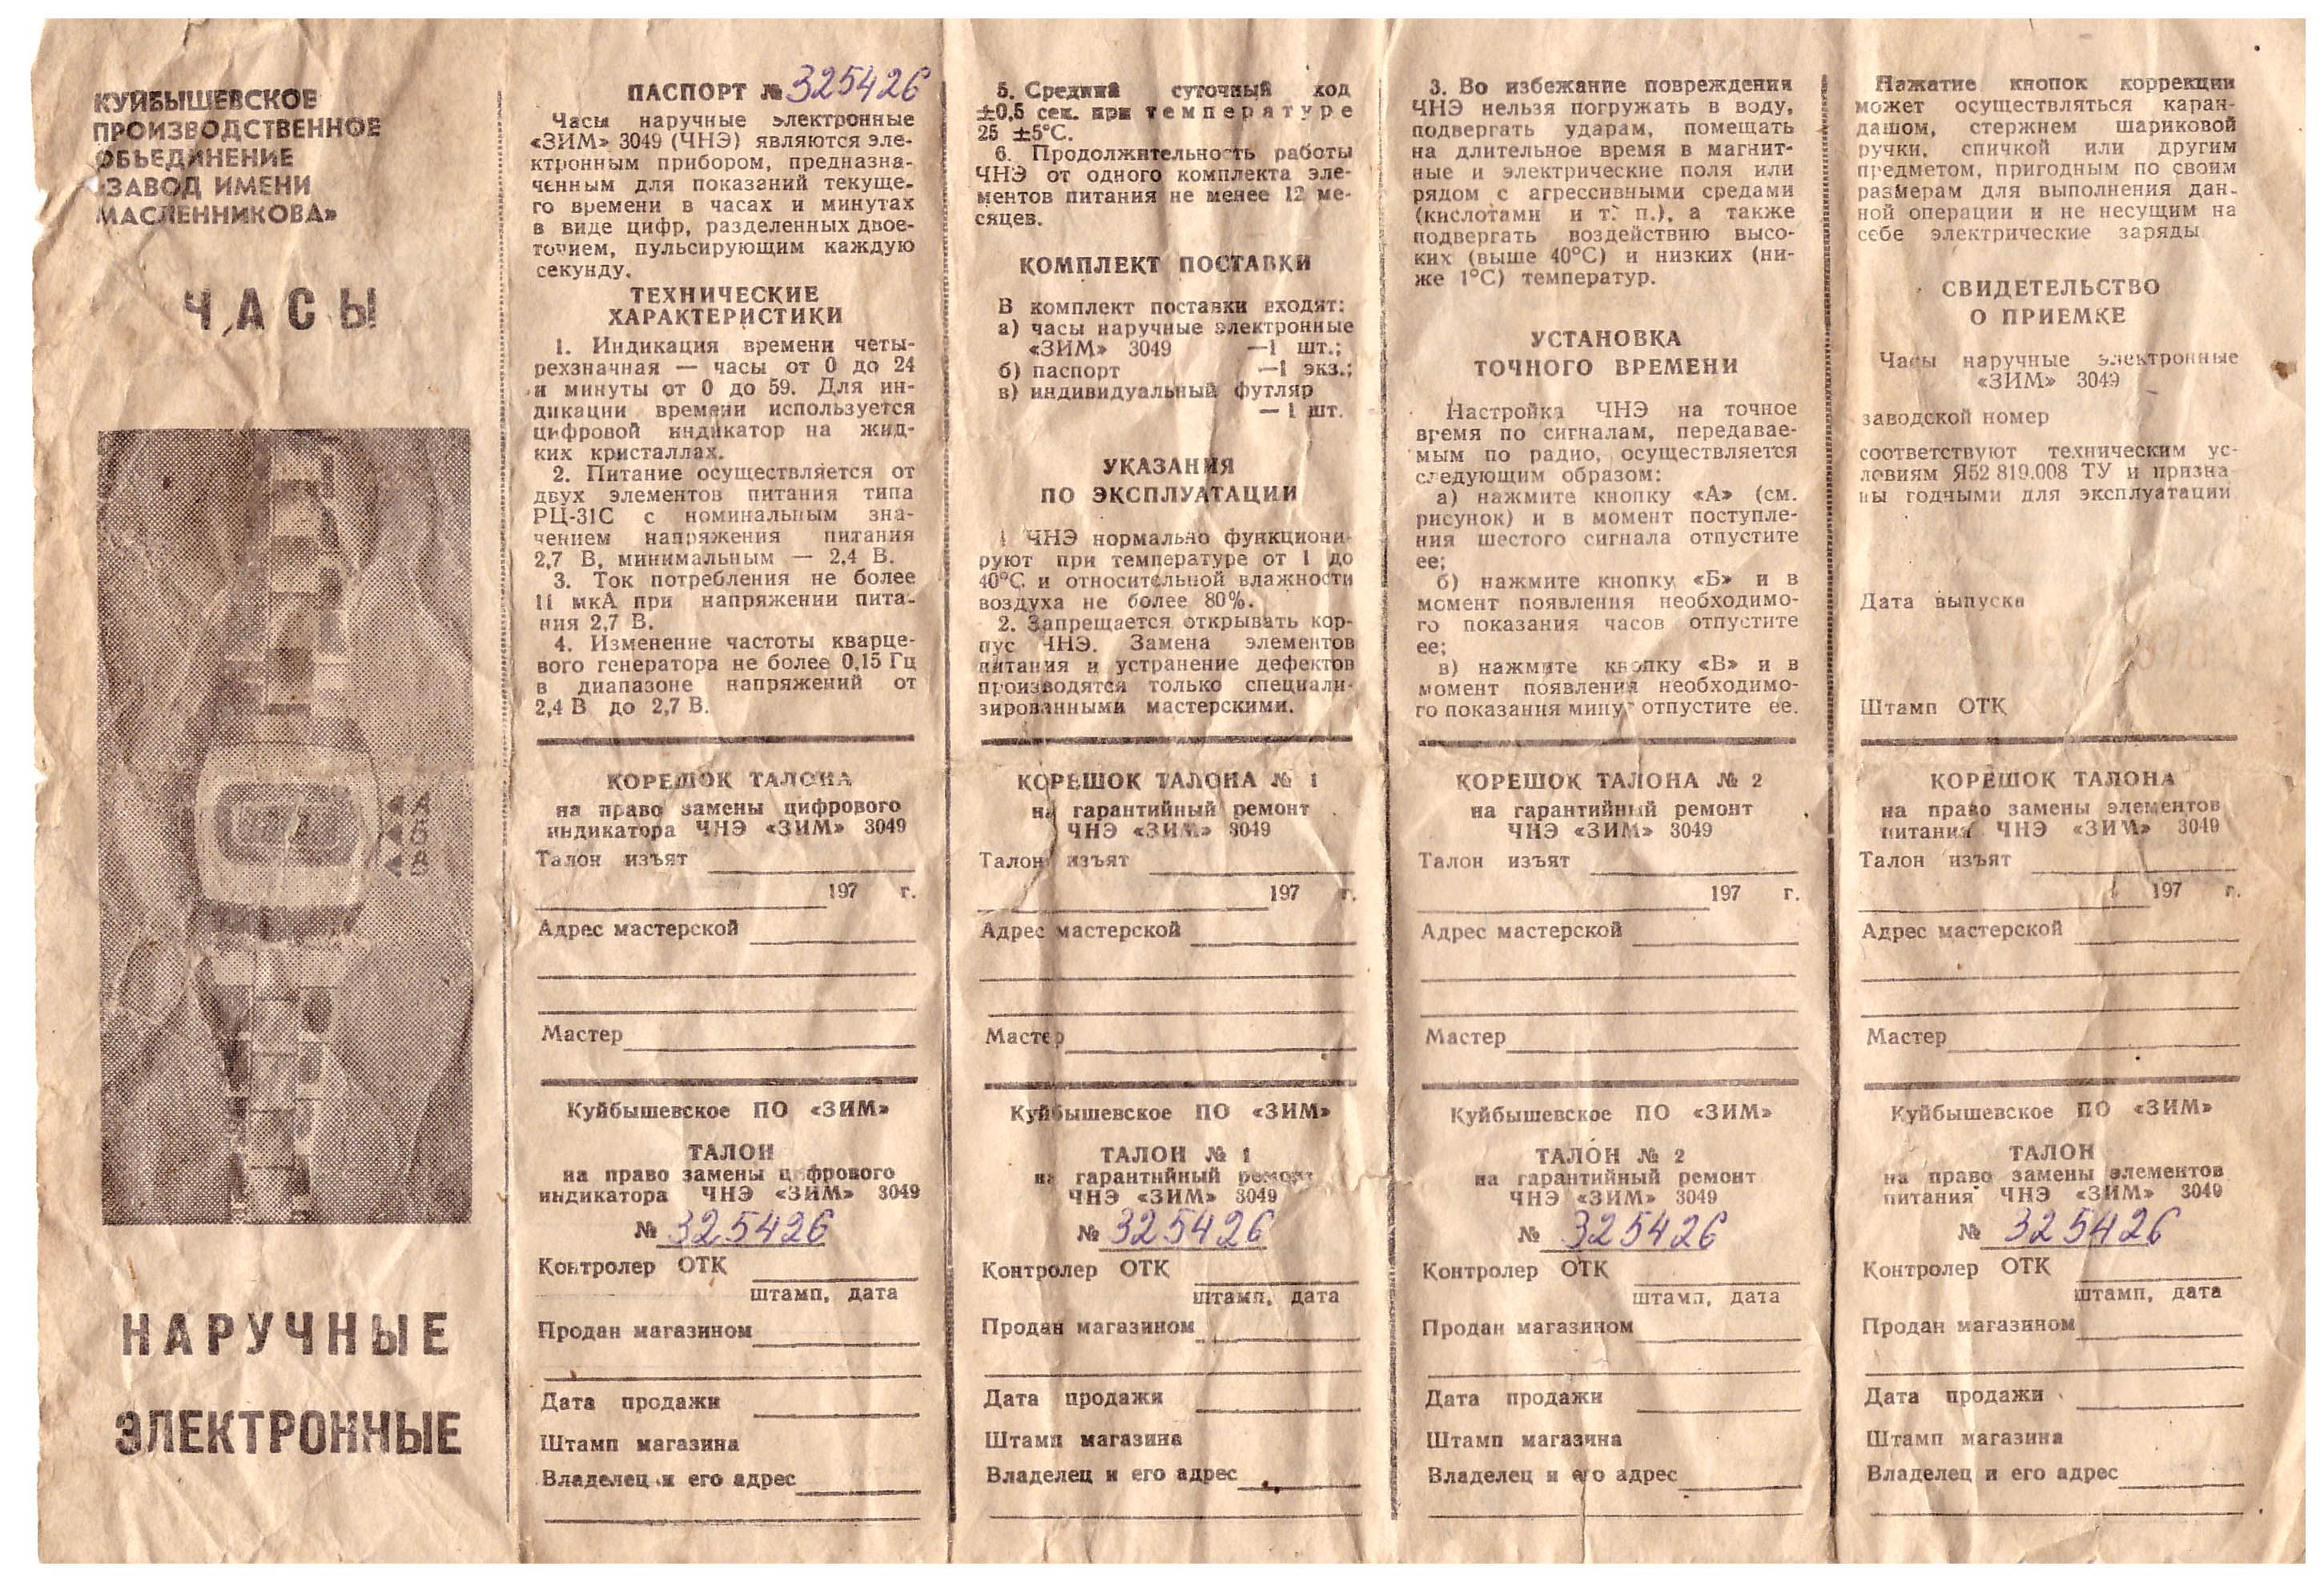 КУЙБЫШЕВСКОЕ
ПРОИЗВОДСТВЕННОЕ
ОБЪЕДИНЕНИЕ
«ЗАВОД ИМЕНИ
МАСЛЕННИКОВА»
ЧАСЫ
А
Б
В
НАРУЧНЫЕ
ЭЛЕКТРОННЫЕ
ПАСПОРТ № 325426
Часы наручные электронные
«ЗИМ» 3049 (ЧНЭ) являются эле-
ктронным прибором, предназна-
ченным для показаний текуще-
го времени в часах и минутах
в виде цифр, разделенных двое-
точием, пульсирующим каждую
секунду.
ТЕХНИЧЕСКИЕ
ХАРАКТЕРИСТИКИ
1. Индикация времени четы-
рехзначная — часы от 0 до 24
и минуты от 0 до 59. Для ин-
дикации времени используется
цифровой индикатор на жид-
ких кристаллах.
2. Питание осуществляется от
двух элементов питания типа
РЦ-31С с номинальным зна-
чением напряжения питания
2,7 В, минимальным — 2,4 В.
3. Ток потребления не более
11 мкА при напряжении пита-
ния 2,7 В.
4. Изменение частоты кварце-
вого генератора не более 0,15 Гц
в диапазоне напряжений от
2,4 В до 2,7 В.
КОРЕШОК ТАЛОНА
на право замены цифрового
индикатора ЧНЭ «ЗИМ» 3049
Талон изъят
197 г.
Адрес мастерской
Мастер
Куйбышевское ПО «ЗИМ»
ТАЛОН
на право замены цифрового
индикатора ЧНЭ «ЗИМ» 3049
№ 325426
Контролер ОТК
штамп, дата
Продан магазином
Дата продажи
Штамп магазина
Владелец и его адрес
5. Средний суточный ход
±0,5 сек. при температуре
25 ±5°С.
6. Продолжительность работы
ЧНЭ от одного комплекта эле-
ментов питания не менее 12 ме-
сяцев.
КОМПЛЕКТ ПОСТАВКИ
В комплект поставки входят:
а) часы наручные электронные
«ЗИМ» 3049 —1 шт.;
б) паспорт —1 экз.;
в) индивидуальный футляр
— 1 шт.
УКАЗАНИЯ
ПО ЭКСПЛУАТАЦИИ
1 ЧНЭ нормально функциони-
руют при температуре от 1 до
40°С и относительной влажности
воздуха не более 80%.
2. Запрещается открывать кор-
пус ЧНЭ. Замена элементов
питания и устранение дефектов
производятся только специали-
зированными мастерскими.
КОРЕШОК ТАЛОНА № 1
на гарантийный ремонт
ЧНЭ «ЗИМ» 3049
Талон изъят
197 г.
Адрес мастерской
Мастер
Куйбышевское ПО «ЗИМ»
ТАЛОН № 1
на гарантийный ремонт
ЧНЭ «ЗИМ» 3049
№ 325426
Контролер ОТК
штамп, дата
Продан магазином
Дата продажи
Штамп магазина
Владелец и его адрес
3. Во избежание повреждения
ЧНЭ нельзя погружать в воду,
подвергать ударам, помещать
на длительное время в магнит-
ные и электрические поля или
рядом с агрессивными средами
(кислотами и т. п.), а также
подвергать воздействию высо-
ких (выше 40°С) и низких (ни-
же 1°С) температур.
УСТАНОВКА
ТОЧНОГО ВРЕМЕНИ
Настройка ЧНЭ на точное
время по сигналам, передавае-
мым по радио, осуществляется
следующим образом:
а) нажмите кнопку «А» (см.
рисунок) и в момент поступле-
ния шестого сигнала отпустите
ее;
б) нажмите кнопку «Б» и в
момент появления необходимо-
го показания часов отпустите
ее;
в) нажмите кнопку «В» и в
момент появления необходимо-
го показания минут отпустите ее.
КОРЕШОК ТАЛОНА № 2
на гарантийный ремонт
ЧНЭ «ЗИМ» 3049
Талон изъят
197 г.
Адрес мастерской
Мастер
Куйбышевское ПО «ЗИМ»
ТАЛОН № 2
на гарантийный ремонт
ЧНЭ «ЗИМ» 3049
№ 325426
Контролер ОТК
штамп, дата
Продан магазином
Дата продажи
Штамп магазина
Владелец и его адрес
Нажатие кнопок коррекции
может осуществляться каран-
дашом, стержнем шариковой
ручки, спичкой или другим
предметом, пригодным по своим
размерам для выполнения дан-
ной операции и не несущим на
себе электрические заряды
СВИДЕТЕЛЬСТВО
О ПРИЕМКЕ
Часы наручные электронные
«ЗИМ» 3049
заводской номер
соответствуют техническим ус-
ловиям Я52 819.008 ТУ и призна
ны годными для эксплуатации
Дата выпуска
Штамп ОТК
КОРЕШОК ТАЛОНА
на право замены элементов
питания ЧНЭ «ЗИМ» 3049
Талон изъят
197 г.
Адрес мастерской
Мастер
Куйбышевское ПО «ЗИМ»
ТАЛОН
на право замены элементов
питания ЧНЭ «ЗИМ» 3049
№ 325426
Контролер ОТК
штамп, дата
Продан магазином
Дата продажи
Штамп магазина
Владелец и его адрес